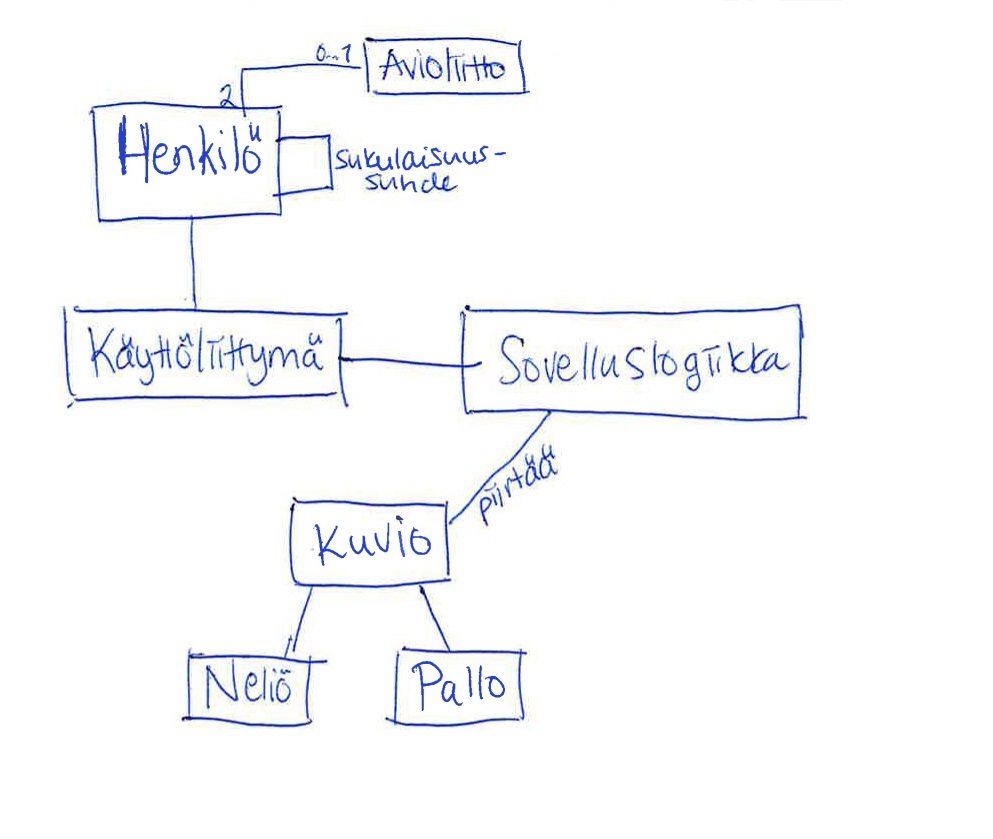 0..1
Avioliitto
2
Henkilö
sukulaisuus-
suhde
Käyttöliittymä
Sovelluslogiikka
piirtää
Kuvio
Neliö
Pallo